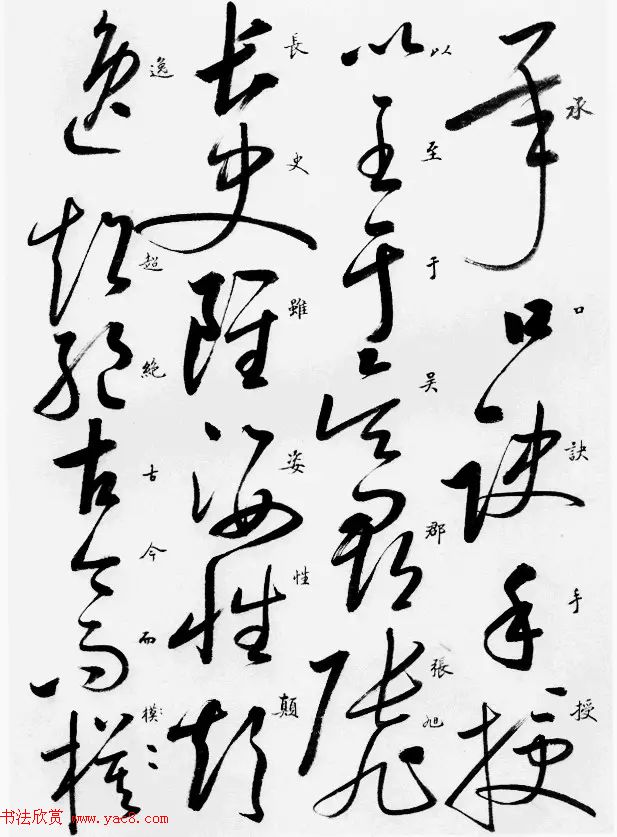 承口訣手授
以至于吴郡張旭
長史雖姿性顛
逸超絶古今而模〻
书法欣赏 www.yac8.com